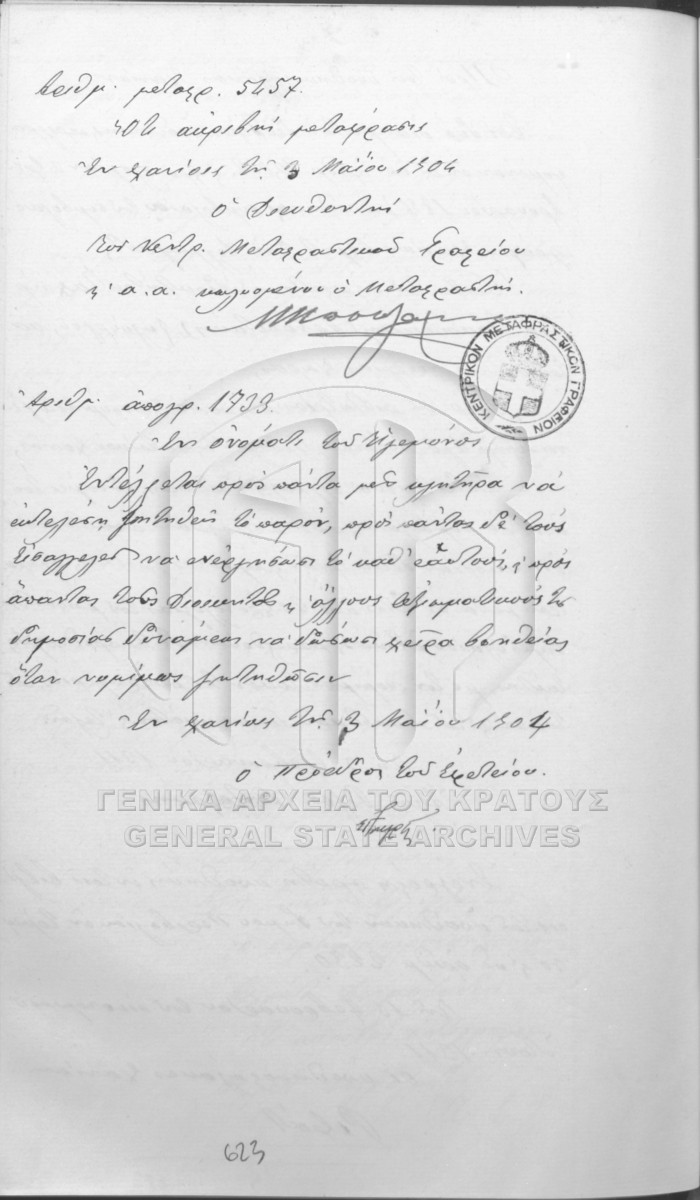 Αριθμ. μεταφρ. 5457.
Ότι ακριβής μετάφρασις
Εν Χανίοις τη 3 Μαΐου 1904
Ο Διευθυντής
του Κεντρ. Μεταφραστικού Γραφείου
κ' α. α. κωλυομένου ο Μεταφραστής.
ΚΕΝΤΡΙΚΟΝ ΜΕΤΑΦΡΑΣΤΙΚΟΝ ΓΡΑΦΕΙΟΝ
Αριθμ. απογρ. 1733.
Εν ονόματι του Ηγεμόνος
Εντέλλεται προς πάντα μεν κλητήρα να
εκτελέση ζητηθείς το παρόν, προς πάντας δε τους
Εισαγγελείς να ενεργήσωσι το καθ' εαυτούς, κ' προς
άπαντας τους Διοικητάς κ' άλλους αξιωματικούς της
δημοσίας δυνάμεως να δώσωσι χείρα βοηθείας
όταν νομίμως ζητηθώσιν
Εν Χανίοις τη 3 Μαΐου 1904
ο Πρόεδρος του Εφετείου.
ΓΕΝΙΚΑ ΑΡΧΕΙΑ ΤΟΥ ΚΡΑΤΟΥΣ
GENERAL STATE ARCHIVES
623